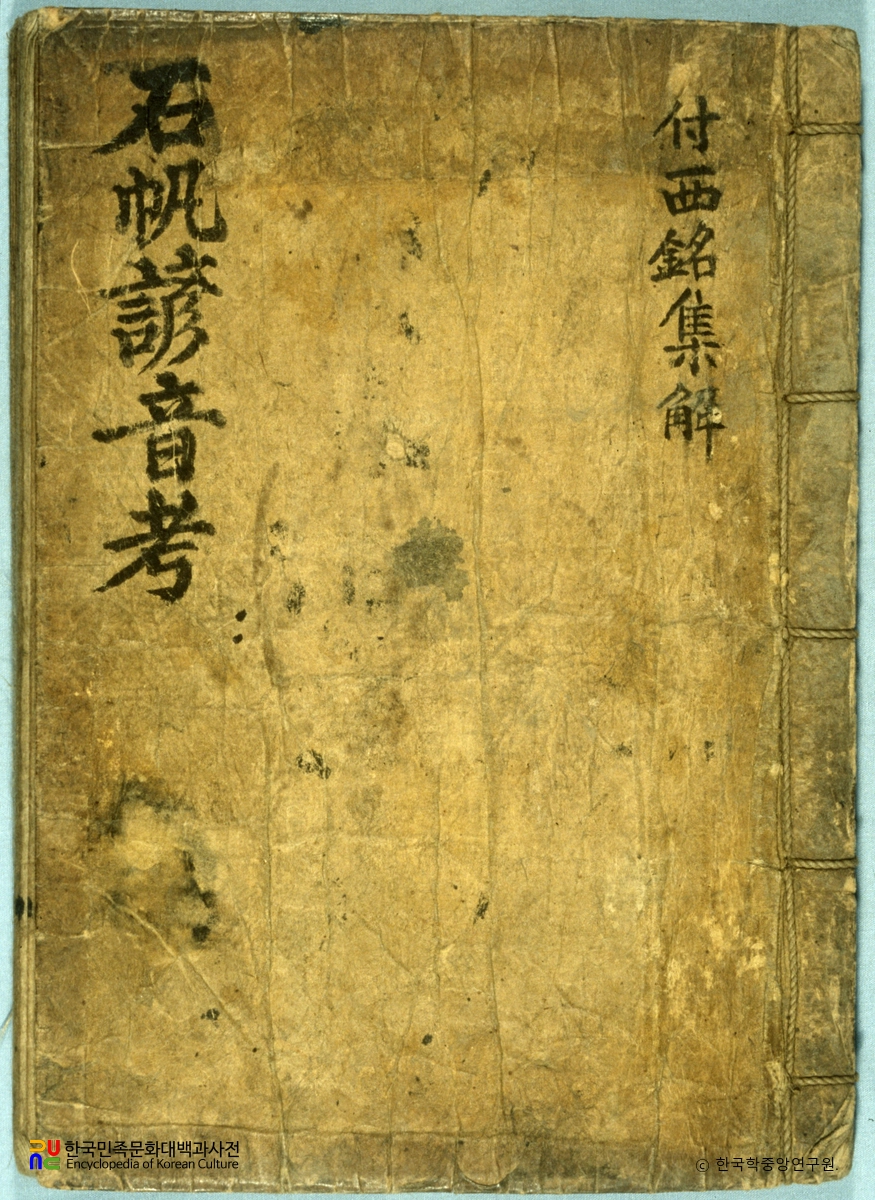 付西銘集解
石帆諺音考
한국민족문화대백과사전
Encyclopedia of Korean Culture
© 한국학중앙연구원